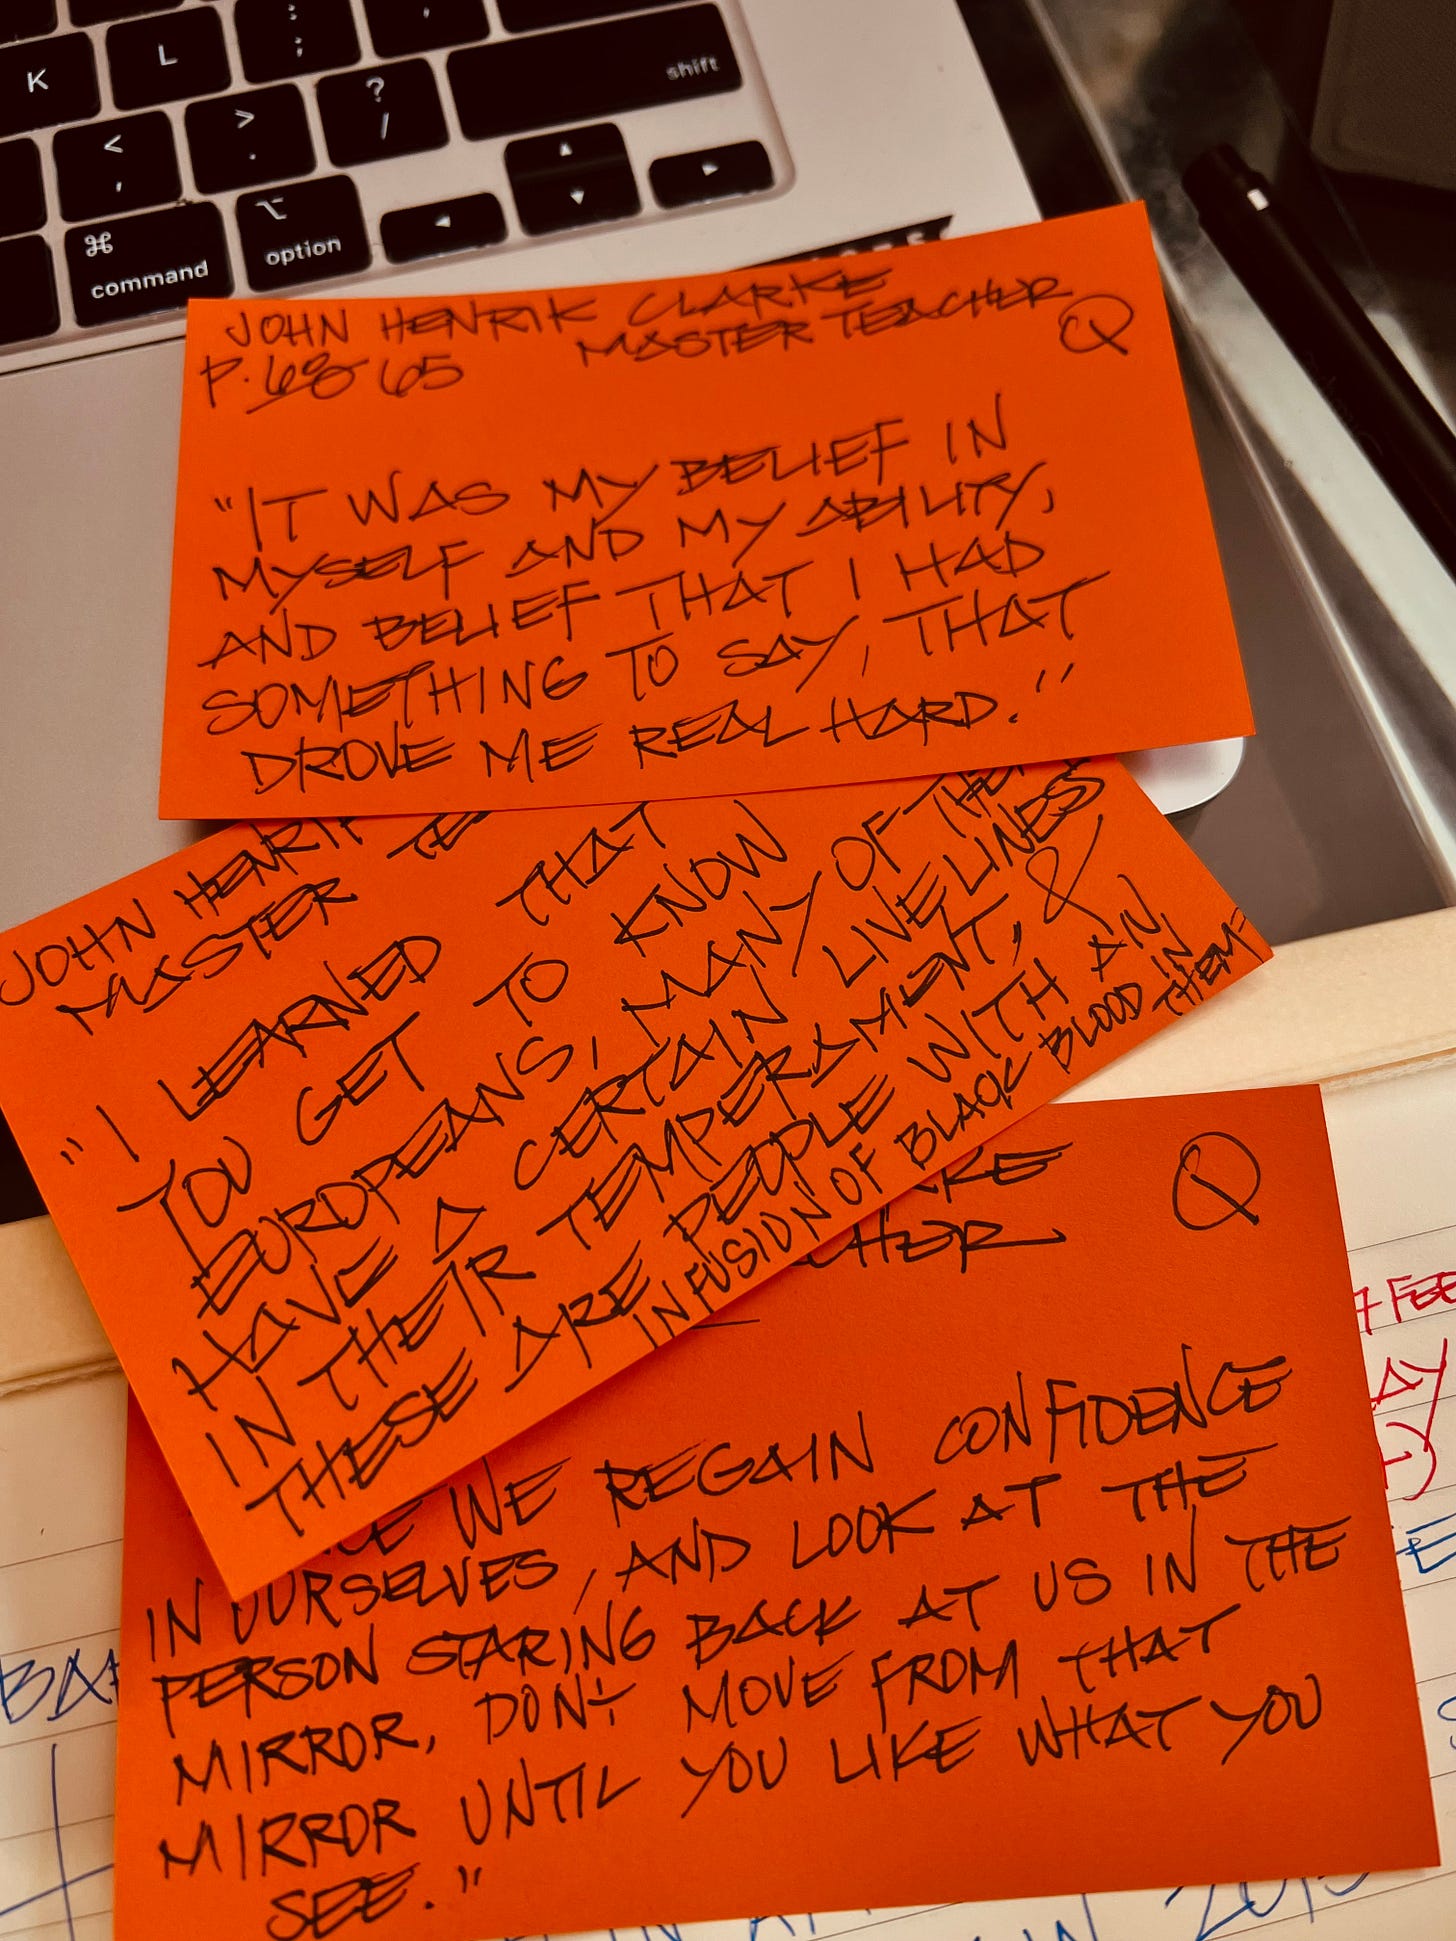 K
L
:
;
"
'
shift
<
,
>
.
?
/
⌘
command
⌥
option
JOHN HENRIK CLARKE
MASTER TEACHER
P. 68 65
Q
"IT WAS MY BELIEF IN
MYSELF AND MY ABILITY,
AND BELIEF THAT I HAD
SOMETHING TO SAY, THAT
DROVE ME REAL HARD."
JOHN HENRIK
MASTER
"I LEARNED THAT
YOU GET TO KNOW
EUROPEANS, MANY OF THEM
HAVE A CERTAIN LIVELINESS
IN THEIR TEMPERAMENT, &
THESE ARE PEOPLE WITH AN
INFUSION OF BLACK BLOOD IN
THEM-
Q
WE REGAIN CONFIDENCE
IN OURSELVES, AND LOOK AT THE
PERSON STARING BACK AT US IN THE
MIRROR, DON'T MOVE FROM THAT
MIRROR UNTIL YOU LIKE WHAT YOU
SEE."